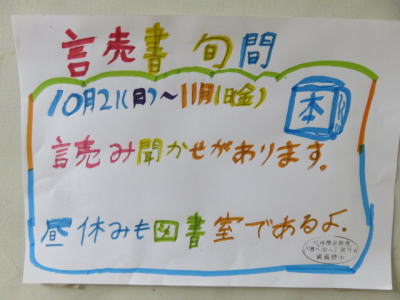 読書旬間
10月21(日)～11月1日(金)
本
読み聞かせがあります。
昼休みも図書室であるよ.